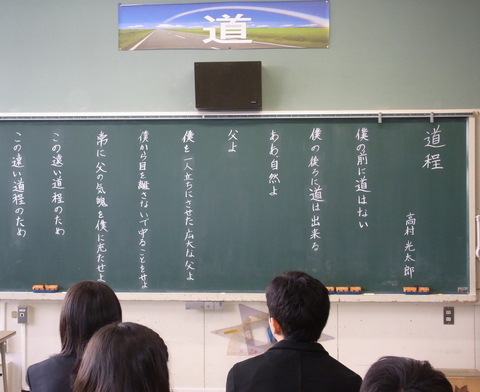 道
道程
高村光太郎
僕の前に道はない
僕の後ろに道は出来る
ああ、自然よ
父よ
僕を一人立ちにさせた広大な父よ
僕から目を離さないで守ることをせよ
常に父の気魄を僕に充たせよ
この遠い道程のため
この遠い道程のため